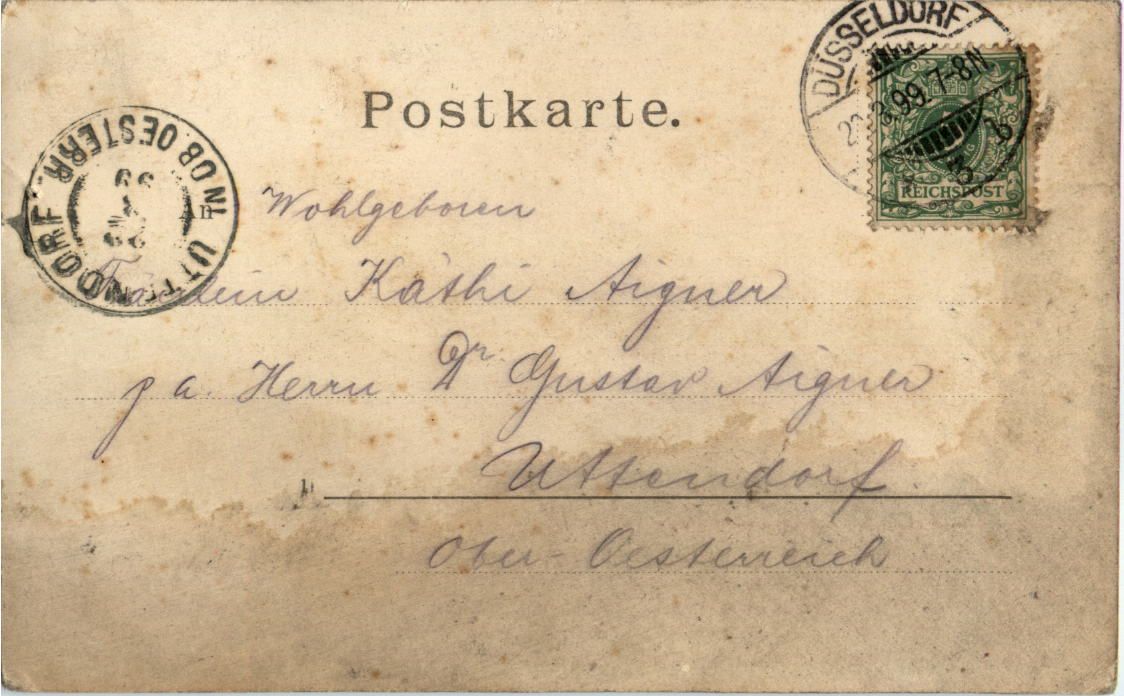 Postkarte.
DÜSSELDORF
99. 7-8N
REICHSPOST
UTTENDORF IN OB. OESTERR.
99
An Wohlgeboren
Fräulein Käthi Aigner
p a. Herrn Dr. Gustav Aigner
Uttendorf.
Ober-Oesterreich